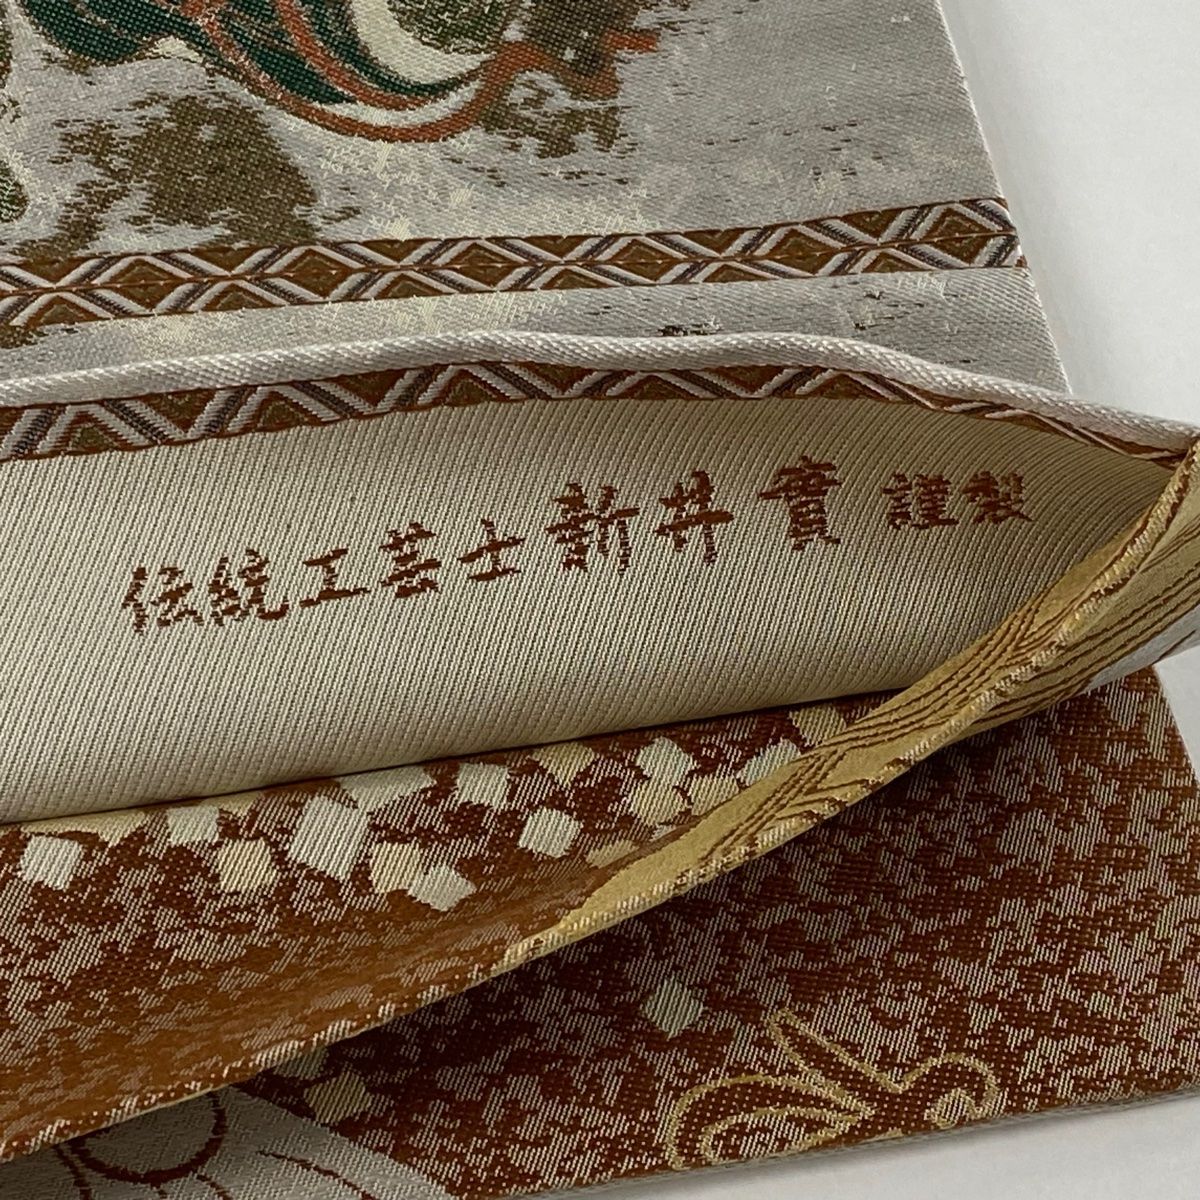 伝統工芸士 新井 實 謹製